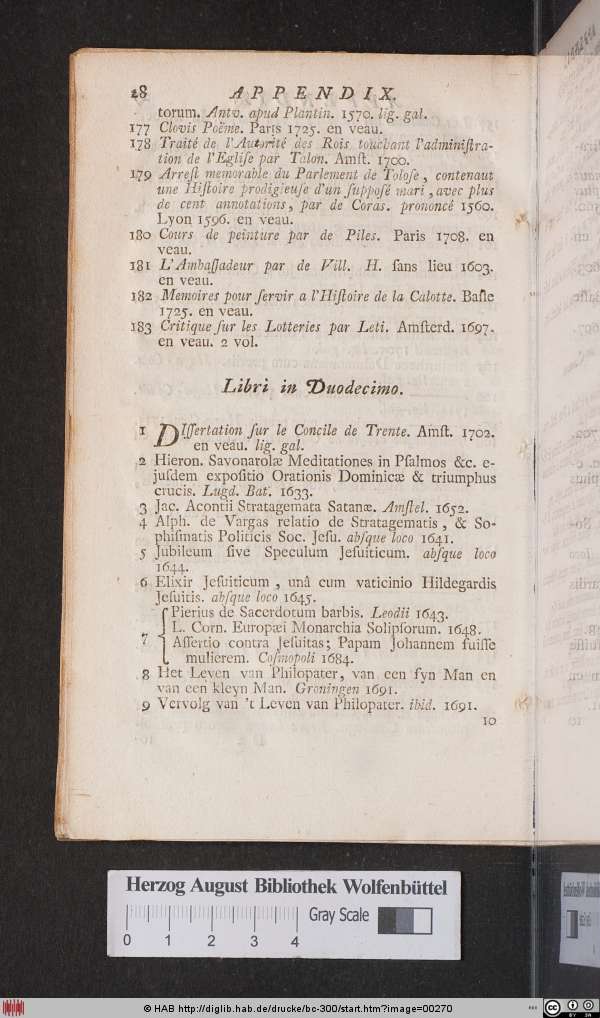 28 APPENDIX.
torum. Antv. apud Plantin. 1570. lig. gal.
177 Clovis Poëme. Paris 1725. en veau.
178 Traité de l'Autorité des Rois touchant l'adminiſtra-
tion de l'Egliſe par Talon. Amſt. 1700.
179 Arreſt memorable du Parlement de Toloſe, contenaut
une Hiſtoire prodigieuſe d'un ſuppoſé mari, avec plus
de cent annotations, par de Coras. prononcé 1560.
Lyon 1596. en veau.
180 Cours de peinture par de Piles. Paris 1708. en
veau.
181 L'Ambaſſadeur par de Vill. H. ſans lieu 1603.
en veau.
182 Memoires pour ſervir a l'Hiſtoire de la Calotte. Baſle
1725. en veau.
183 Critique ſur les Lotteries par Leti. Amſterd. 1697.
en veau. 2 vol.
Libri in Duodecimo.
1 DIſſertation ſur le Concile de Trente. Amſt. 1702.
en veau. lig. gal.
2 Hieron. Savonarolæ Meditationes in Pſalmos &c. e-
juſdem expoſitio Orationis Dominicæ & triumphus
crucis. Lugd. Bat. 1633.
3 Jac. Acontii Stratagemata Satanæ. Amſtel. 1652.
4 Alph. de Vargas relatio de Stratagematis, & So-
phiſmatis Politicis Soc. Jeſu. abſque loco 1641.
5 Jubileum ſive Speculum Jeſuiticum. abſque loco
1644.
6 Elixir Jeſuiticum, unâ cum vaticinio Hildegardis
Jeſuitis. abſque loco 1645.
Pierius de Sacerdotum barbis. Leodii 1643.
L. Corn. Europæi Monarchia Solipſorum. 1648.
7 Aſſertio contra Jeſuitas; Papam Johannem fuiſſe
mulierem. Coſmopoli 1684.
8 Het Leven van Philopater, van een ſyn Man en
van een kleyn Man. Groningen 1691.
9 Vervolg van 't Leven van Philopater. ibid. 1691.
10
Herzog August Bibliothek Wolfenbüttel
Gray Scale
0 1 2 3 4
© HAB http://diglib.hab.de/drucke/bc-300/start.htm?image=00270